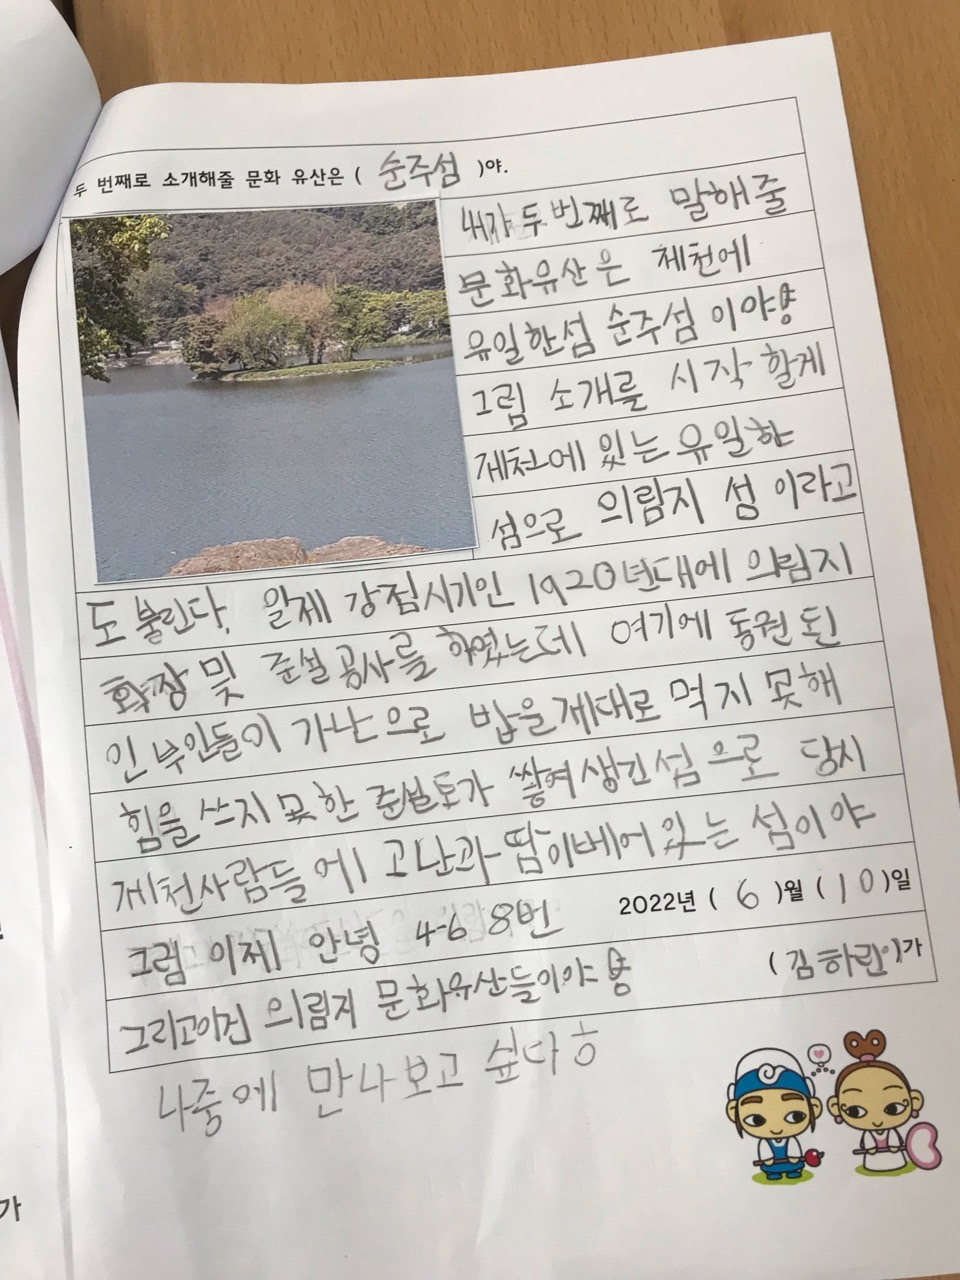 두 번째로 소개해줄 문화 유산은 ( 순주섬 )야.
내가 두번째로 말해줄
문화유산은 제천에
유일한섬 순주섬 이야
그럼 소개를 시작 할게
제천에 있는 유일한
섬으로 의림지 섬 이라고
도 불린다. 일제 강점시기인 1920년대에 의림지
확장 및 준설공사를 하였는데 여기에 동원 된
인부인들이 가난으로 밥을 제대로 먹지 못해
힘을 쓰지 못한 준설토가 쌓여생긴섬으로 당시
제천사람들에 고난과 땀이베어있는 섬이야
그럼 이제 안녕 4-6 8번
2022년 ( 6 )월 ( 10 )일
그리고이건 의림지 문화유산들이야
( 김하린이)가
나중에 만나보고 싶다ㅎ
가